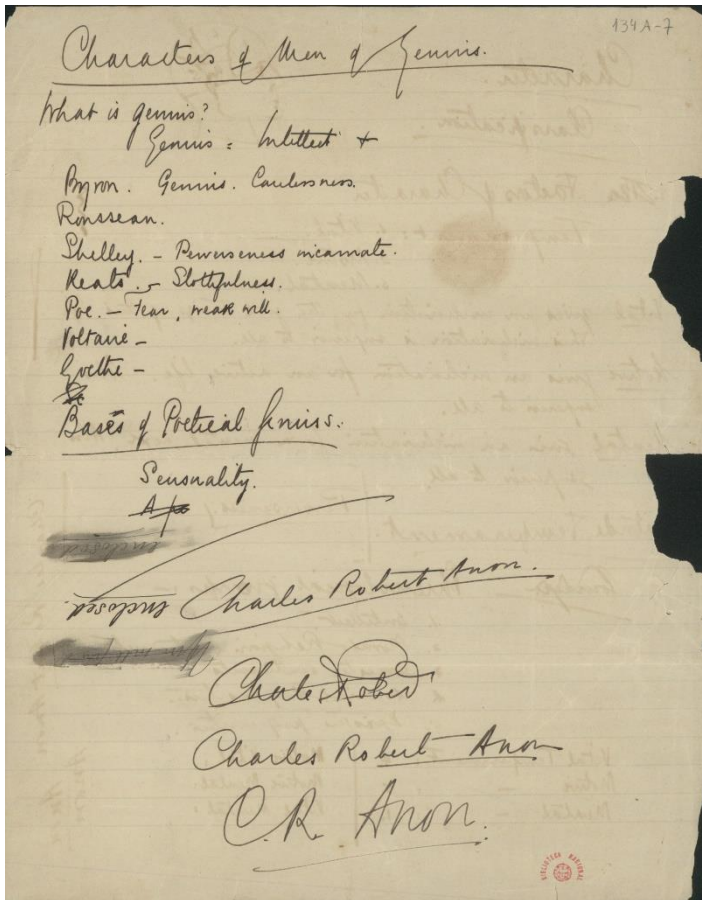 134A-7
Characters of Men of Genius.
What is genius?
Genius = Intellect +
Byron. Genius. Carelessness.
Rousseau.
Shelley. - Perverseness incarnate.
Keats. - Slothfulness.
Poe. - Fear, weak will.
Voltaire -
Goethe -
Bases of Poetical Genius.
Sensuality.
enclosed
Charles Robert Anon.
enclosed.
Charles Robert
Charles Robert Anon
C.R. Anon.
BIBLIOTECA NACIONAL